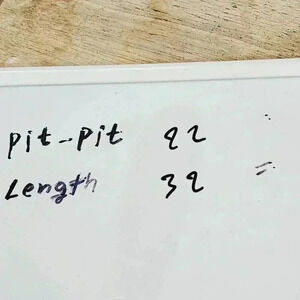 Pit-Pit 22
Length 32